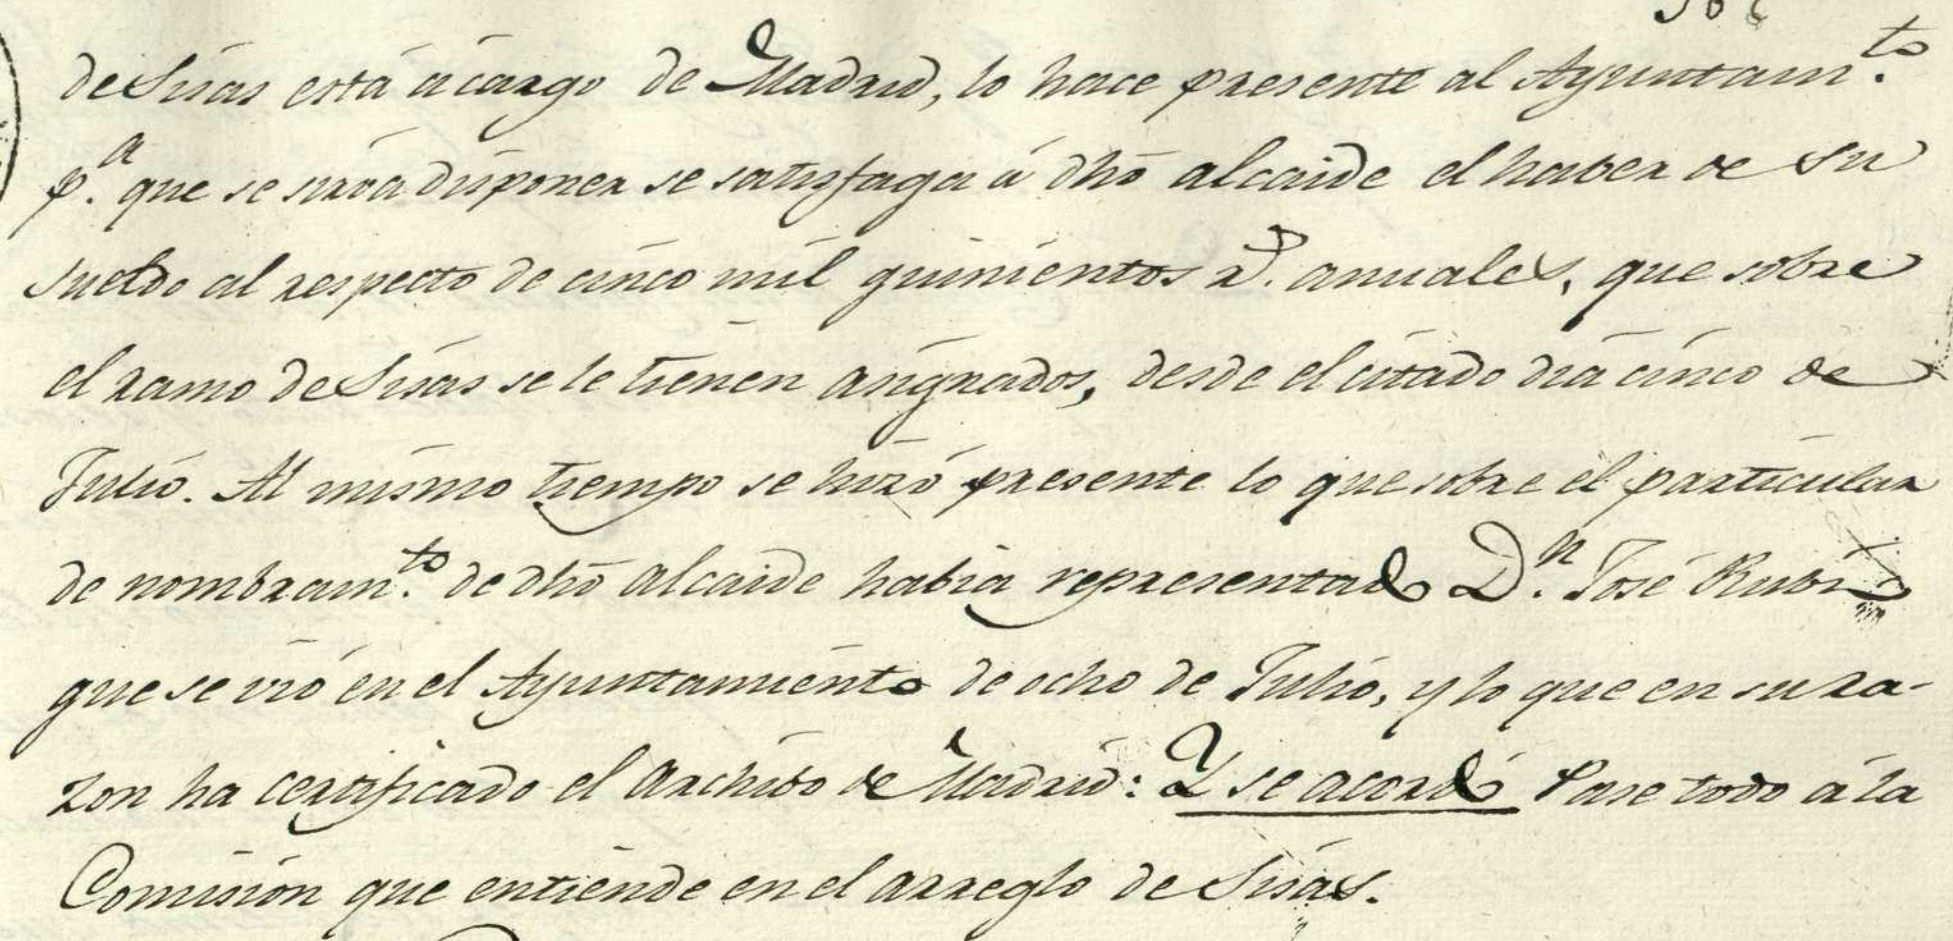 de Sisas está á cargo de Madrid, lo hace presente al Ayuntam.to
p.a que se sirva disponer se satisfaga á dho alcaide el haber de su
sueldo al respecto de cinco mil quinientos r.s anuales, que sobre
el ramo de Sisas se le tienen asignados, desde el citado dia cinco de
Julio. Al mismo tiempo se hizó presente lo que sobre el particular
de nombram.to de dho alcaide habia representado D.n José Rubio
que se vió en el Ayuntamiento de ocho de Julio, y lo que en su ra-
zon ha certificado el Archibo de Madrid: Y se acordó Pase todo á la
Comision que entiende en el arreglo de Sisas.